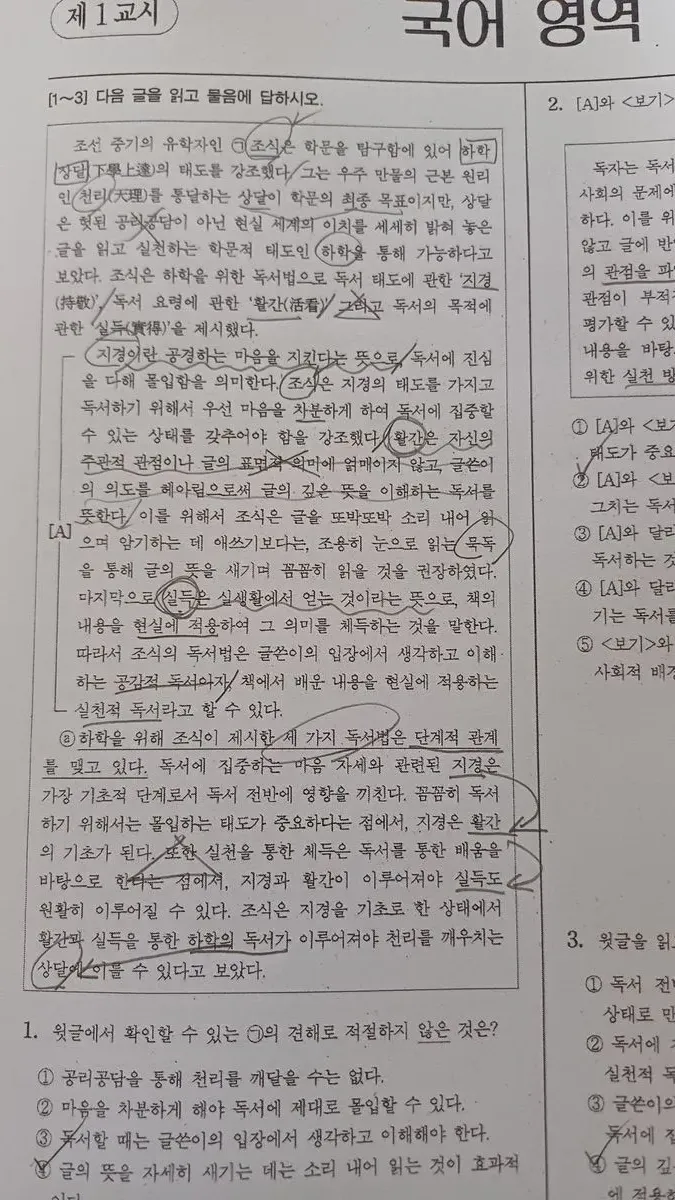 제 1 교시
국어 영역
[1~3] 다음 글을 읽고 물음에 답하시오.
조선 중기의 유학자인 ㉠조식은 학문을 탐구함에 있어 하학
상달(下學上達)의 태도를 강조했다. 그는 우주 만물의 근본 원리
인 천리(天理)를 통달하는 상달이 학문의 최종 목표이지만, 상달
은 헛된 공리공담이 아닌 현실 세계의 이치를 세세히 밝혀 놓은
글을 읽고 실천하는 학문적 태도인 하학을 통해 가능하다고
보았다. 조식은 하학을 위한 독서법으로 독서 태도에 관한 ‘지경
(持敬)’, 독서 요령에 관한 ‘활간(活看)’ 그리고 독서의 목적에
관한 ‘실득(實得)’을 제시했다.
지경이란 공경하는 마음을 지킨다는 뜻으로, 독서에 진심
을 다해 몰입함을 의미한다. 조식은 지경의 태도를 가지고
독서하기 위해서 우선 마음을 차분하게 하여 독서에 집중할
수 있는 상태를 갖추어야 함을 강조했다. 활간은 자신의
주관적 관점이나 글의 표면적 의미에 얽매이지 않고, 글쓴이
의 의도를 헤아림으로써 글의 깊은 뜻을 이해하는 독서를
뜻한다. 이를 위해서 조식은 글을 또박또박 소리 내어 읽
[A]
으며 암기하는 데 애쓰기보다는, 조용히 눈으로 읽는 묵독
을 통해 글의 뜻을 새기며 꼼꼼히 읽을 것을 권장하였다.
마지막으로 실득은 실생활에서 얻는 것이라는 뜻으로, 책의
내용을 현실에 적용하여 그 의미를 체득하는 것을 말한다.
따라서 조식의 독서법은 글쓴이의 입장에서 생각하고 이해
하는 공감적 독서이자, 책에서 배운 내용을 현실에 적용하는
실천적 독서라고 할 수 있다.
ⓐ하학을 위해 조식이 제시한 세 가지 독서법은 단계적 관계
를 맺고 있다. 독서에 집중하는 마음 자세와 관련된 지경은
가장 기초적 단계로서 독서 전반에 영향을 끼친다. 꼼꼼히 독서
하기 위해서는 몰입하는 태도가 중요하다는 점에서, 지경은 활간
의 기초가 된다. 또한 실천을 통한 체득은 독서를 통한 배움을
바탕으로 한다는 점에서, 지경과 활간이 이루어져야 실득도
원활히 이루어질 수 있다. 조식은 지경을 기초로 한 상태에서
활간과 실득을 통한 하학의 독서가 이루어져야 천리를 깨우치는
상달에 이를 수 있다고 보았다.
1. 윗글에서 확인할 수 있는 ㉠의 견해로 적절하지 않은 것은?
① 공리공담을 통해 천리를 깨달을 수는 없다.
② 마음을 차분하게 해야 독서에 제대로 몰입할 수 있다.
③ 독서할 때는 글쓴이의 입장에서 생각하고 이해해야 한다.
④ 글의 뜻을 자세히 새기는 데는 소리 내어 읽는 것이 효과적
2. [A]와 <보기>
독자는 독서
사회의 문제에
하다. 이를 위
않고 글에 반
의 관점을 파
관점이 부적
평가할 수 있
내용을 바탕
위한 실천 방
① [A]와 <보
태도가 중요
② [A]와 <보
그치는 독서
③ [A]와 달리
독서하는 것
④ [A]와 달리
기는 독서를
⑤ <보기>와
사회적 배경
3. 윗글을 읽
① 독서 전
상태로 만
② 독서에
실천적 독
③ 글쓴이의
독서에 집
④ 글의 깊
에 적용하